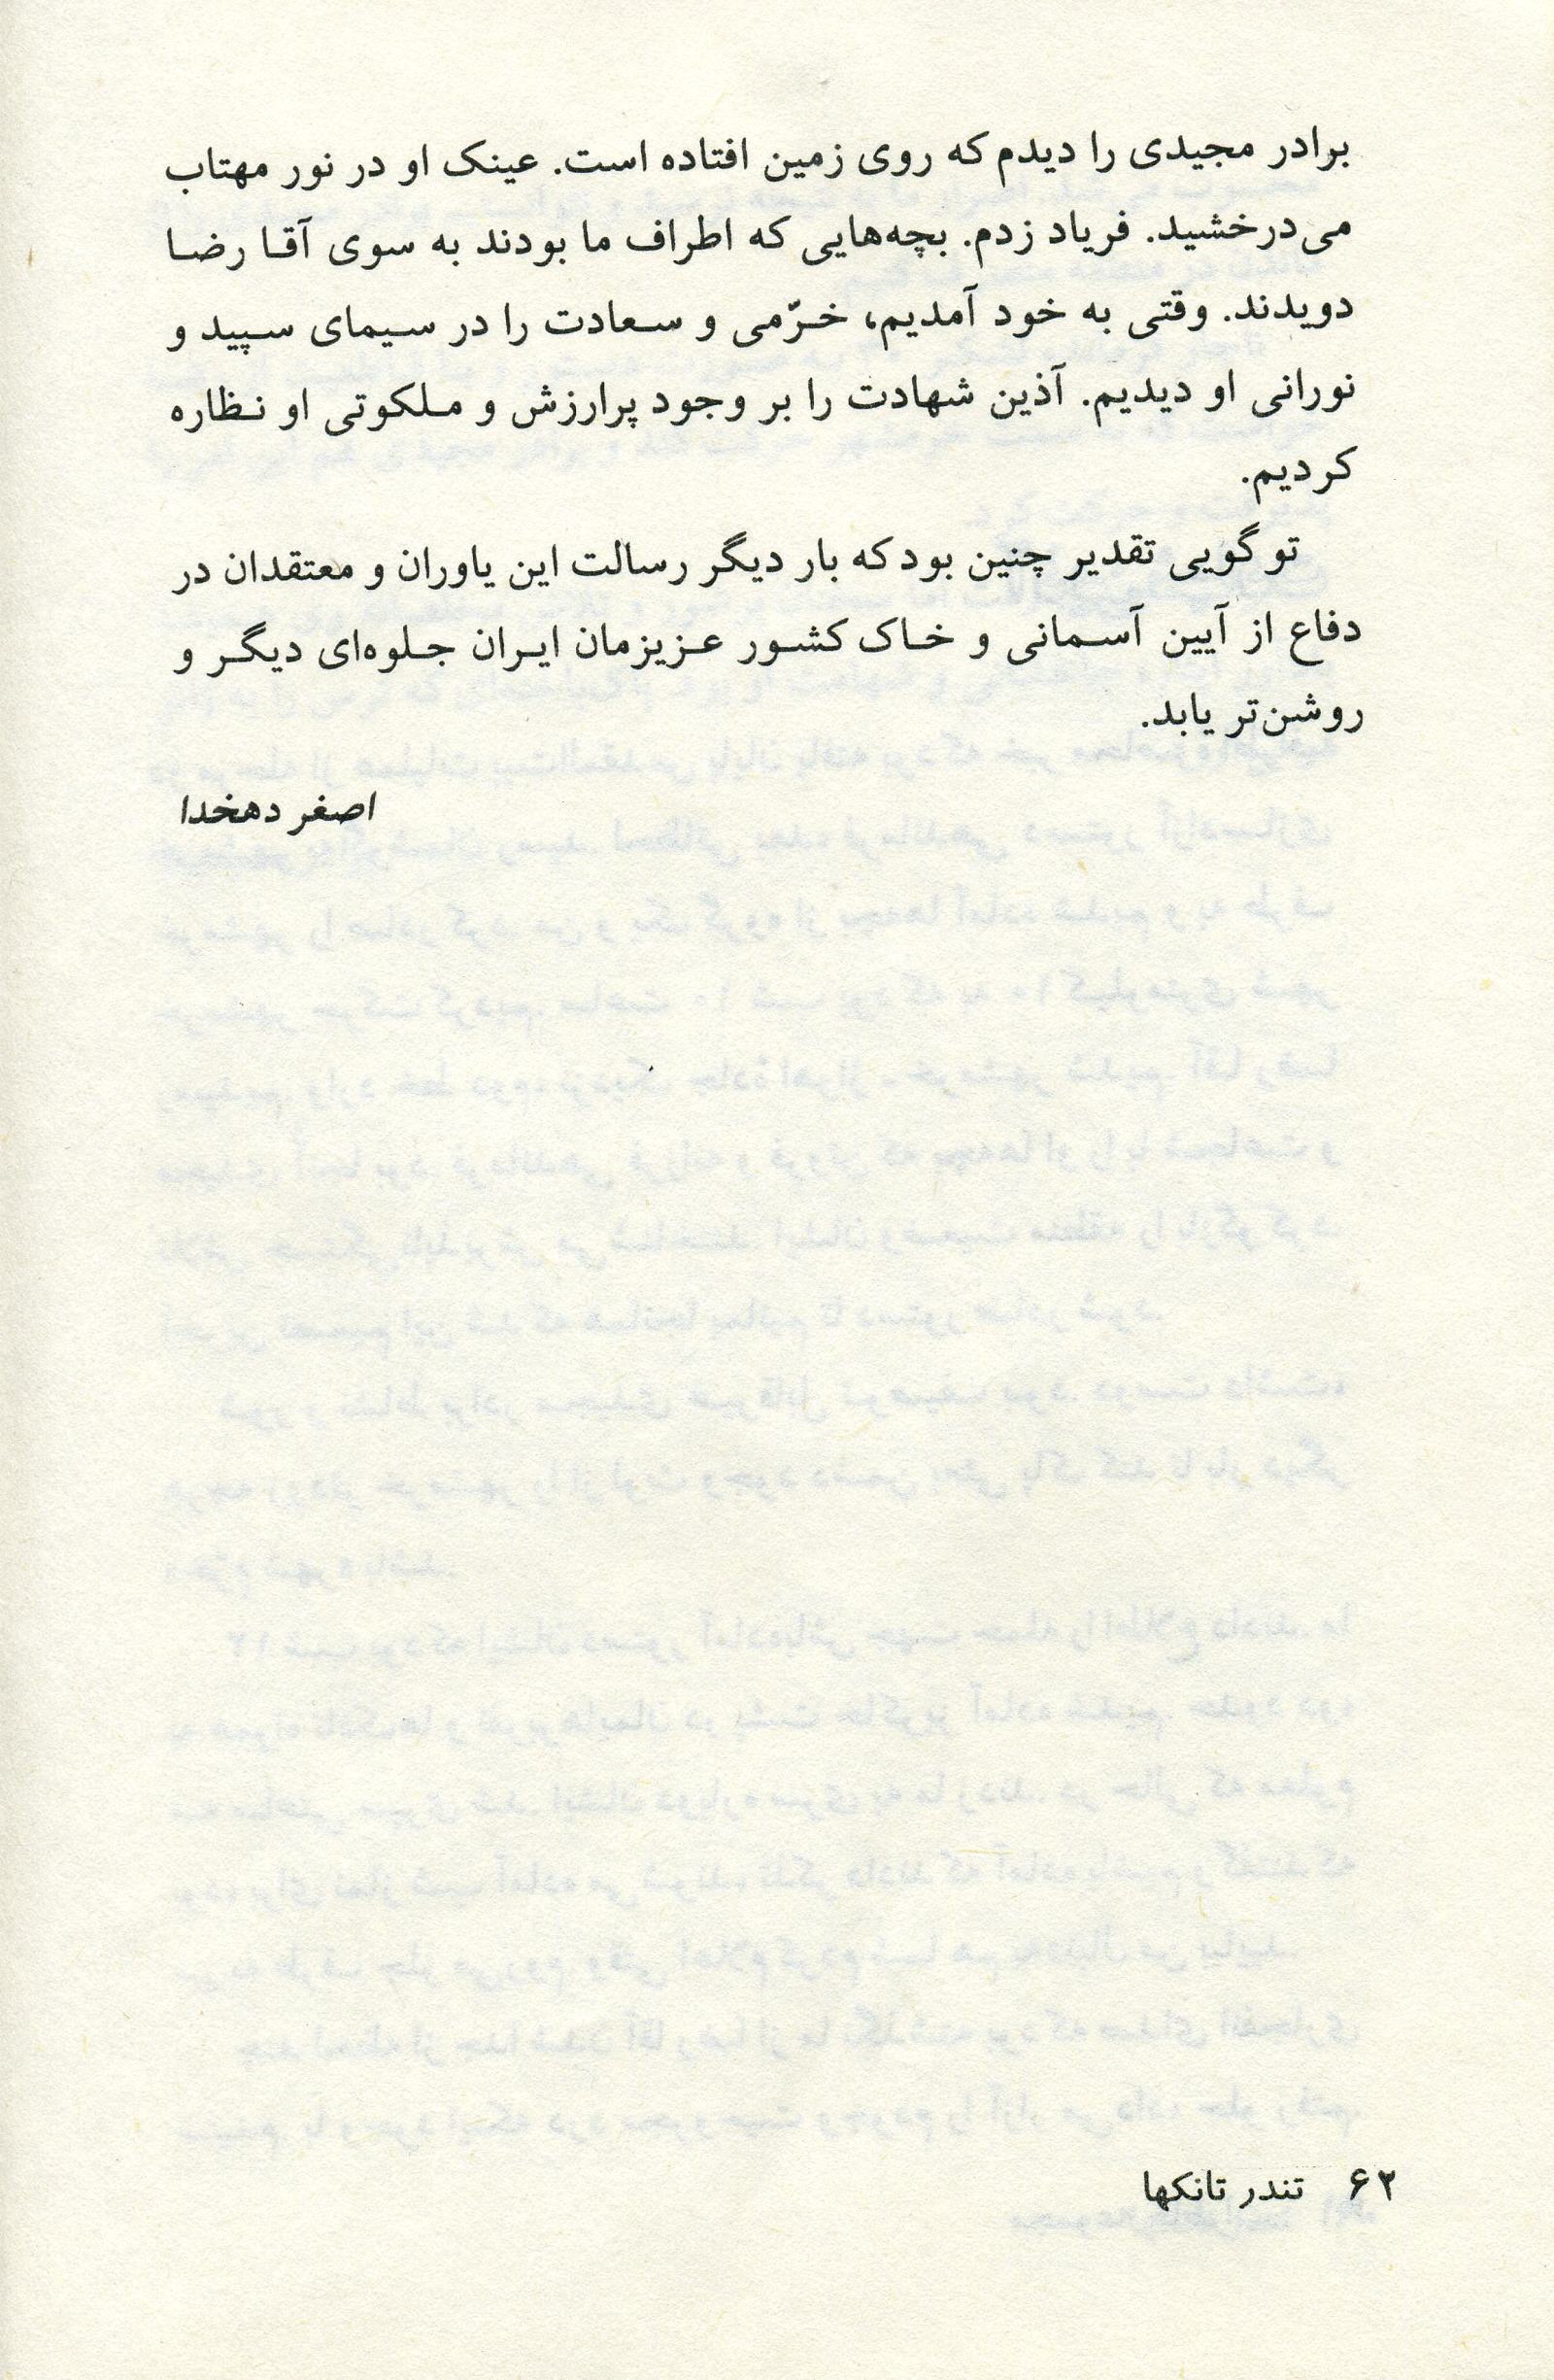 برادر مجیدی را دیدم که روی زمین افتاده است. عینک او در نور مهتاب
می‌درخشید. فریاد زدم. بچه‌هایی که اطراف ما بودند به سوی آقا رضا
دویدند. وقتی به خود آمدیم، خرّمی و سعادت را در سیمای سپید و
نورانی او دیدیم. آذین شهادت را بر وجود پرارزش و ملکوتی او نظاره
کردیم.
تو گویی تقدیر چنین بود که بار دیگر رسالت این یاوران و معتقدان در
دفاع از آیین آسمانی و خاک کشور عزیزمان ایران جلوه‌ای دیگر و
روشن‌تر یابد.
اصغر دهخدا
۶۲ تندر تانکها